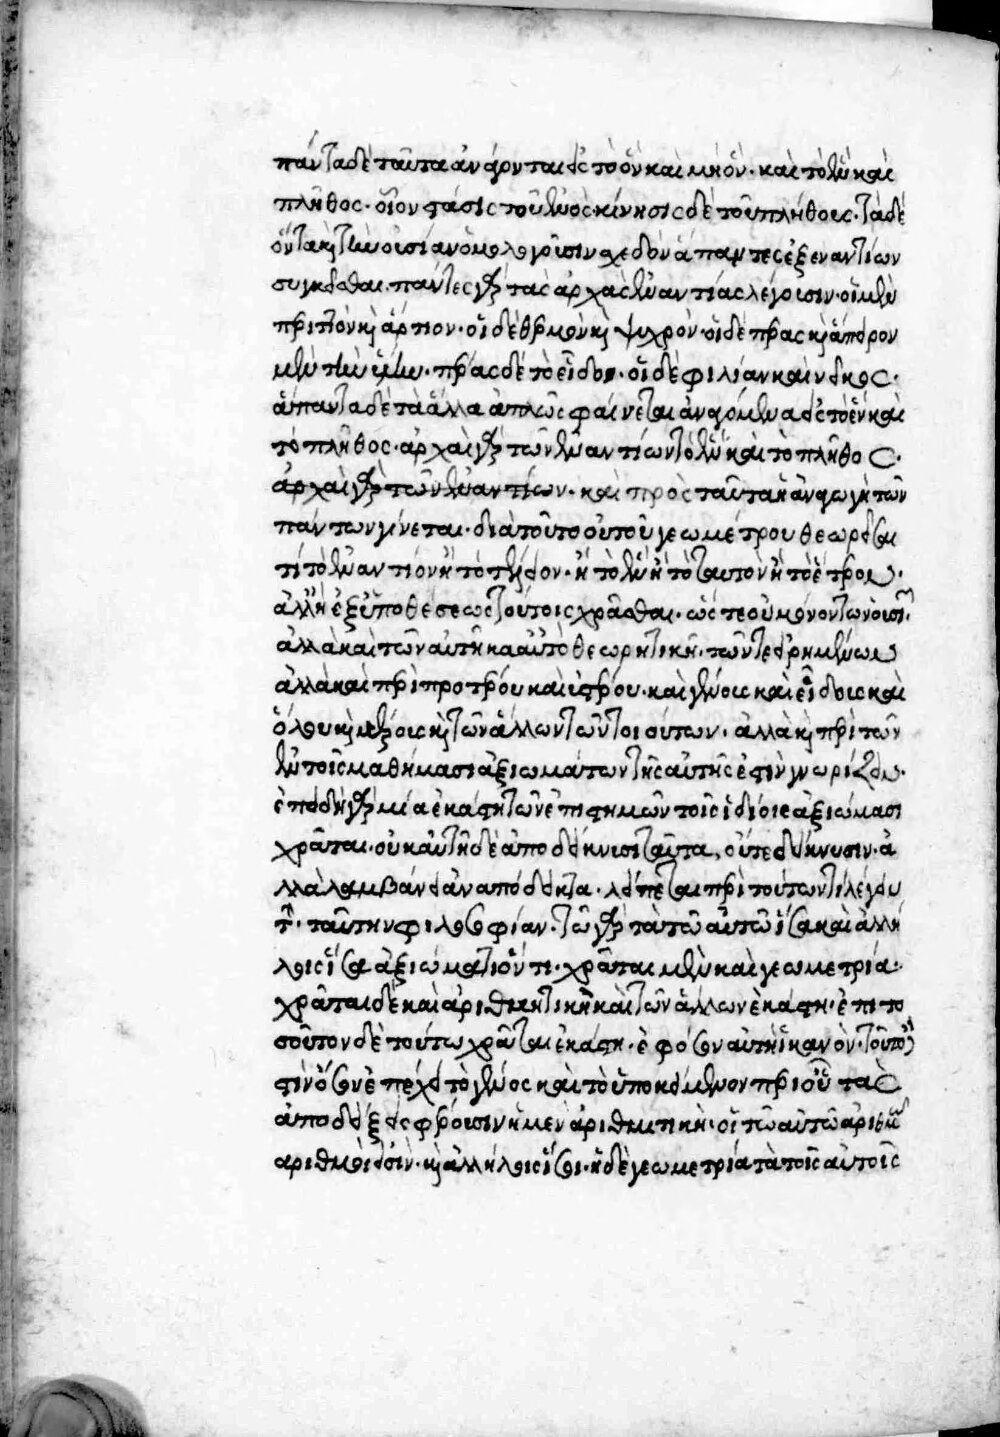 πάντα δὲ ταῦτα ἀνάγονται εἰς τὸ ὂν καὶ μὴ ὄν· καὶ τὸ ἓν καὶ
πλῆθος· οἷον στάσις τοῦ ἑνὸς κίνησις δὲ τοῦ πλήθους· τὰ δὲ
ὄντα κ τὴν οὐσίαν ὁμολογοῦσιν σχεδὸν ἅπαντες ἐξ ἐναντίων
συγκεῖσθαι. πάντες γὰρ τὰς ἀρχὰς ἐναντίας λέγουσιν· οἱ μὲν
περιττὸν κ ἄρτιον· οἱ δὲ θερμὸν κ ψυχρὸν· οἱ δὲ πέρας κ ἄπειρον
μὲν τὴν ὕλην· πέρας δὲ τὸ εἶδος. οἱ δὲ φιλίαν καὶ νεῖκος.
ἅπαντα δὲ τὰ ἄλλα ἁπλῶς φαίνεται ἀναγόμενα εἰς τὸ ἓν καὶ
τὸ πλῆθος· ἀρχαὶ γὰρ τῶν ἐναντίων τὸ ἓν καὶ τὸ πλῆθος.
ἀρχαὶ γὰρ τῶν ἐναντίων· καὶ πρὸς ταῦτα ἡ ἀναγωγὴ τῶν
πάντων γίνεται. διὰ τοῦτο οὐ τοῦ γεωμέτρου θεωρεῖσαι
τί τὸ ἐναντίον ἢ τὸ τέλειον· ἢ τὸ ἓν ἢ τὸ ταυτὸν ἢ τὸ ἕτερον.
ἀλλ' ἢ ἐξ ὑποθέσεως τούτοις χρᾶσθαι. ὥστε οὐ μόνον τῶν οὐσι
ἀλλὰ καὶ τῶν αὐτῆ καθ αὑτὸ θεωρητικῆ· τῶν τε εἰρημένων
ἀλλὰ καὶ περὶ προτέρου καὶ ὑστέρου· καὶ γένους καὶ εἴδους καὶ
ὅλου κ μέρους κ τῶν ἄλλων τῶν τοιούτων. ἀλλὰ κ περὶ τῶν
ἐν τοῖς μαθήμασι ἀξιωμάτων τῆς αὐτῆς ἐστὶν γνωρίζειν.
ἐπειδὴ γὰρ μία ἑκάστη τῶν ἐπιστημῶν τοῖς ἰδίοις ἀξιώμασι
χρᾶται· οὐκ αὐτὴ δὲ ἀποδείκνυσι ταῦτα, οὔτε δείκνυσιν· ἀ
λλὰ λαμβάνει ἀναπόδεικτα· λείπεται περὶ τούτων τι λέγειν
τ. ταύτην φιλοσοφίαν. τῶ γὰρ τὰ τῶ αὐτῶ ἴσα καὶ ἀλλή
λοις ἴσα ἀξιώματι ὄντι· χρᾶται μὲν καὶ γεωμετρία·
χρᾶται δὲ καὶ ἀριθμητικὴ καὶ τῶν ἄλλων ἑκάστη· ἐπὶ το
σοῦτον δὲ τούτω χρᾶται ἑκάστη· ἐφ' ὅσον αὐτῆ ἱκανόν· τοῦτο
στὶν ὅσον ἐπέχει τὸ γένος καὶ τὸ ὑποκείμενον περὶ οὗ τὰς
ἀποδείξεις φέρουσιν ἡ μὲν ἀριθμητικὴ· οἱ τῶ αὐτῶ ἀριθμῶ
ἀριθμοὶ εἰσὶν· κ ἀλλήλοις ἴσοι· ἡ δὲ γεωμετρία τὰ τοῖς αὐτοῖς